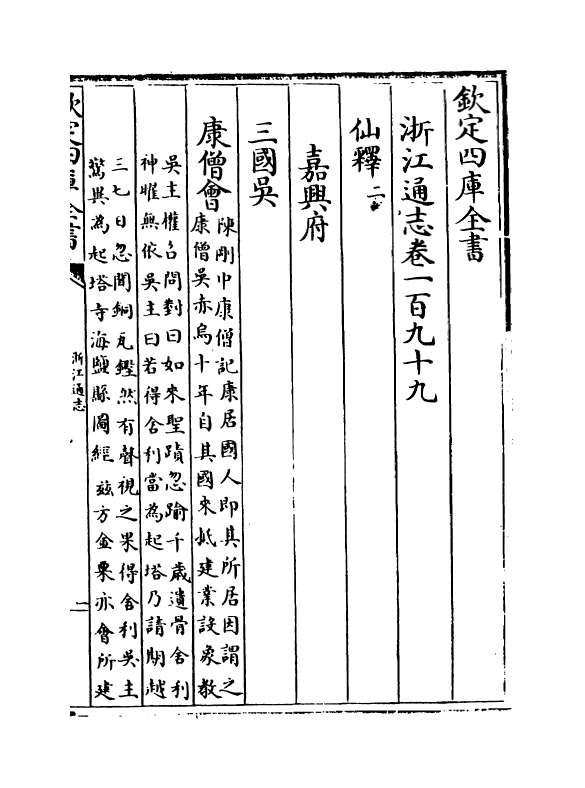 欽定四庫全書
浙江通志卷一百九十九
仙釋二
嘉興府
三國吳
康僧會
陳剛中康僧記康居國人即其所居因謂之
康僧吳赤烏十年自其國來抵建業設象教
吳主權召問對曰如來聖蹟忽踰千歲遺骨舍利
神曜無依吳主曰若得舍利當為起塔乃請期越
三七日忽聞銅瓦鏗然有聲視之果得舍利吳主
驚異為起塔寺海鹽縣圖經茲方金粟亦會所建
欽定四庫全書
浙江通志